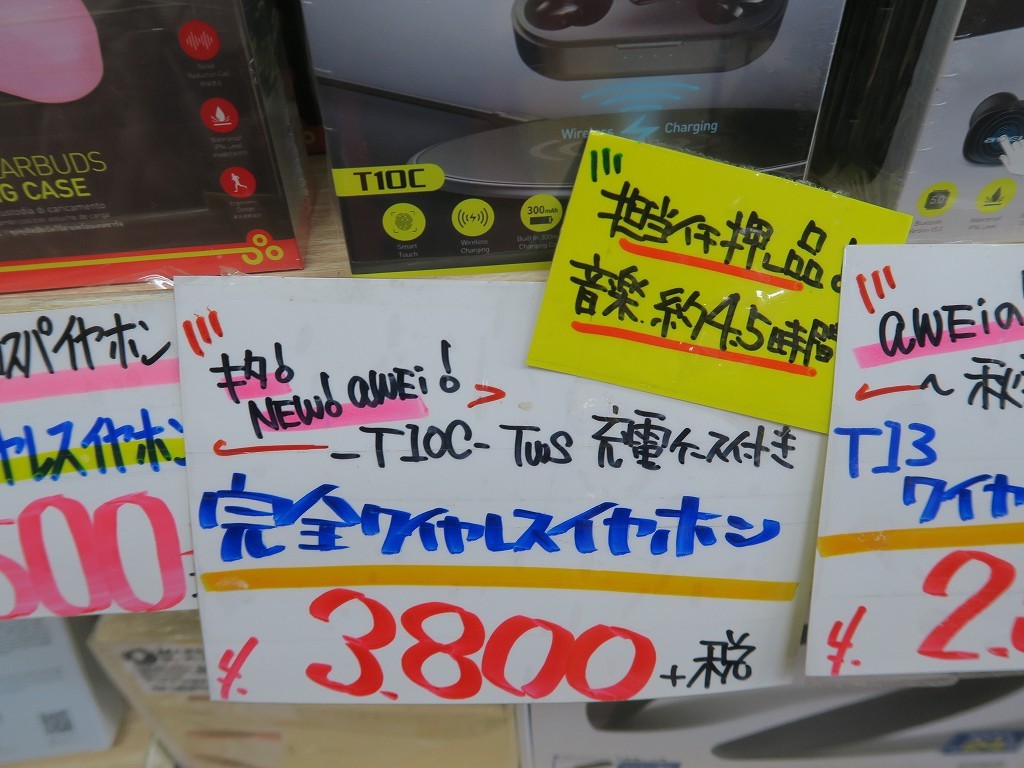 EARBUDS
NG CASE
Wireless Charging
T1OC
Smart Touch
Wireless Charging
300mAh
担当イチ押し品。
音楽.約4.5時間
スパイヤホン
キタ!
NEW! aWEi!
-T10C- TwS 充電ケース付き
完全ワイヤレスイヤホン
¥.3.800+税
ヤレスイヤホン
500
aWEi
T13
ワイヤ
¥.2.